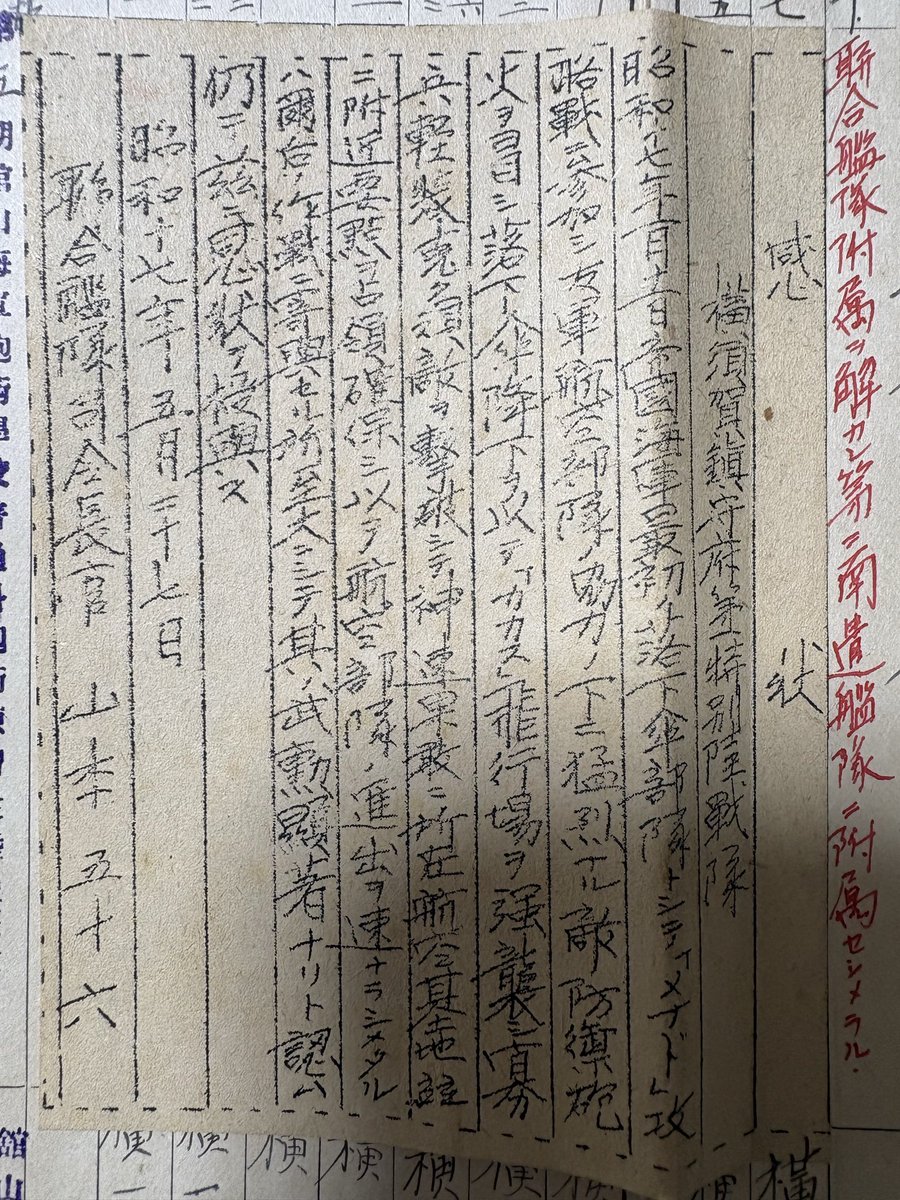 聯合艦隊附属ヲ解カレ第二南遣艦隊ニ附属セシメラル.
感状
横須賀鎮守府第一特別陸戦隊
昭和十七年一月十一日帝國海軍最初ノ落下傘部隊トシテ「メナド」攻
略戦ニ参加シ友軍航空部隊ノ協力ノ下ニ猛烈ナル敵防禦砲
火ヲ冒シ落下傘降下ヲ以テカカス飛行場ヲ强襲シ寡
兵軽装克ク頑敵ヲ撃破シテ神速果敢ニ所在航空基地並
ニ附近要點ヲ占領確保シ以テ航空部隊ノ進出ヲ速ナラシメタル
ハ爾后ノ作戰ニ寄與セル所至大ニシテ其ノ武勲顯著ナリト認ム
仍テ茲ニ感状ヲ授與ス
昭和十七年五月二十七日
聯合艦隊司令長官 山本五十六